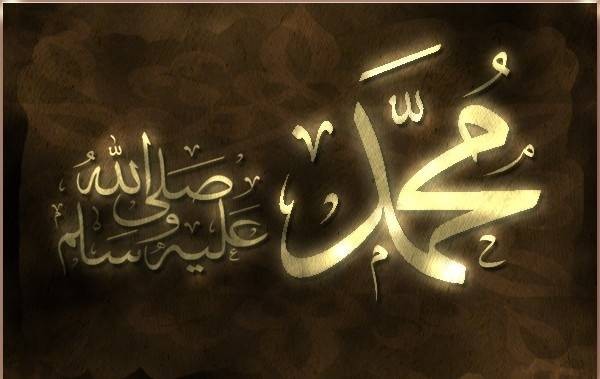 مُحَمَّد
صَلَى اللهُ
عَلَيهِ وَسَلم